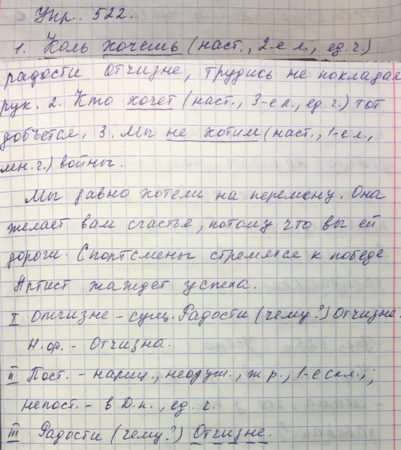 Упр. 522.
1. Коль хочешь (наст., 2-е л., ед.ч.)
радости Отчизне, трудись не покладая
рук. 2. Кто хочет (наст., 3-е л., ед.ч.) тот
добьётся, 3. Мы не хотим (наст., 1-е л.,
мн.ч.) войны.
Мы давно хотели на перемену. Она
желает вам счастья, потому что вы ей
дороги. Спортсмены стремятся к победе.
Артист жаждет успеха.
I Отчизне - сущ. Радости (чему?) Отчизне.
Н.ф. - Отчизна.
II Пост. - нариц., неодуш., ж.р., 1-е скл.,;
непост. - в Д.п., ед. ч.
III Радости (чему?) Отчизне.